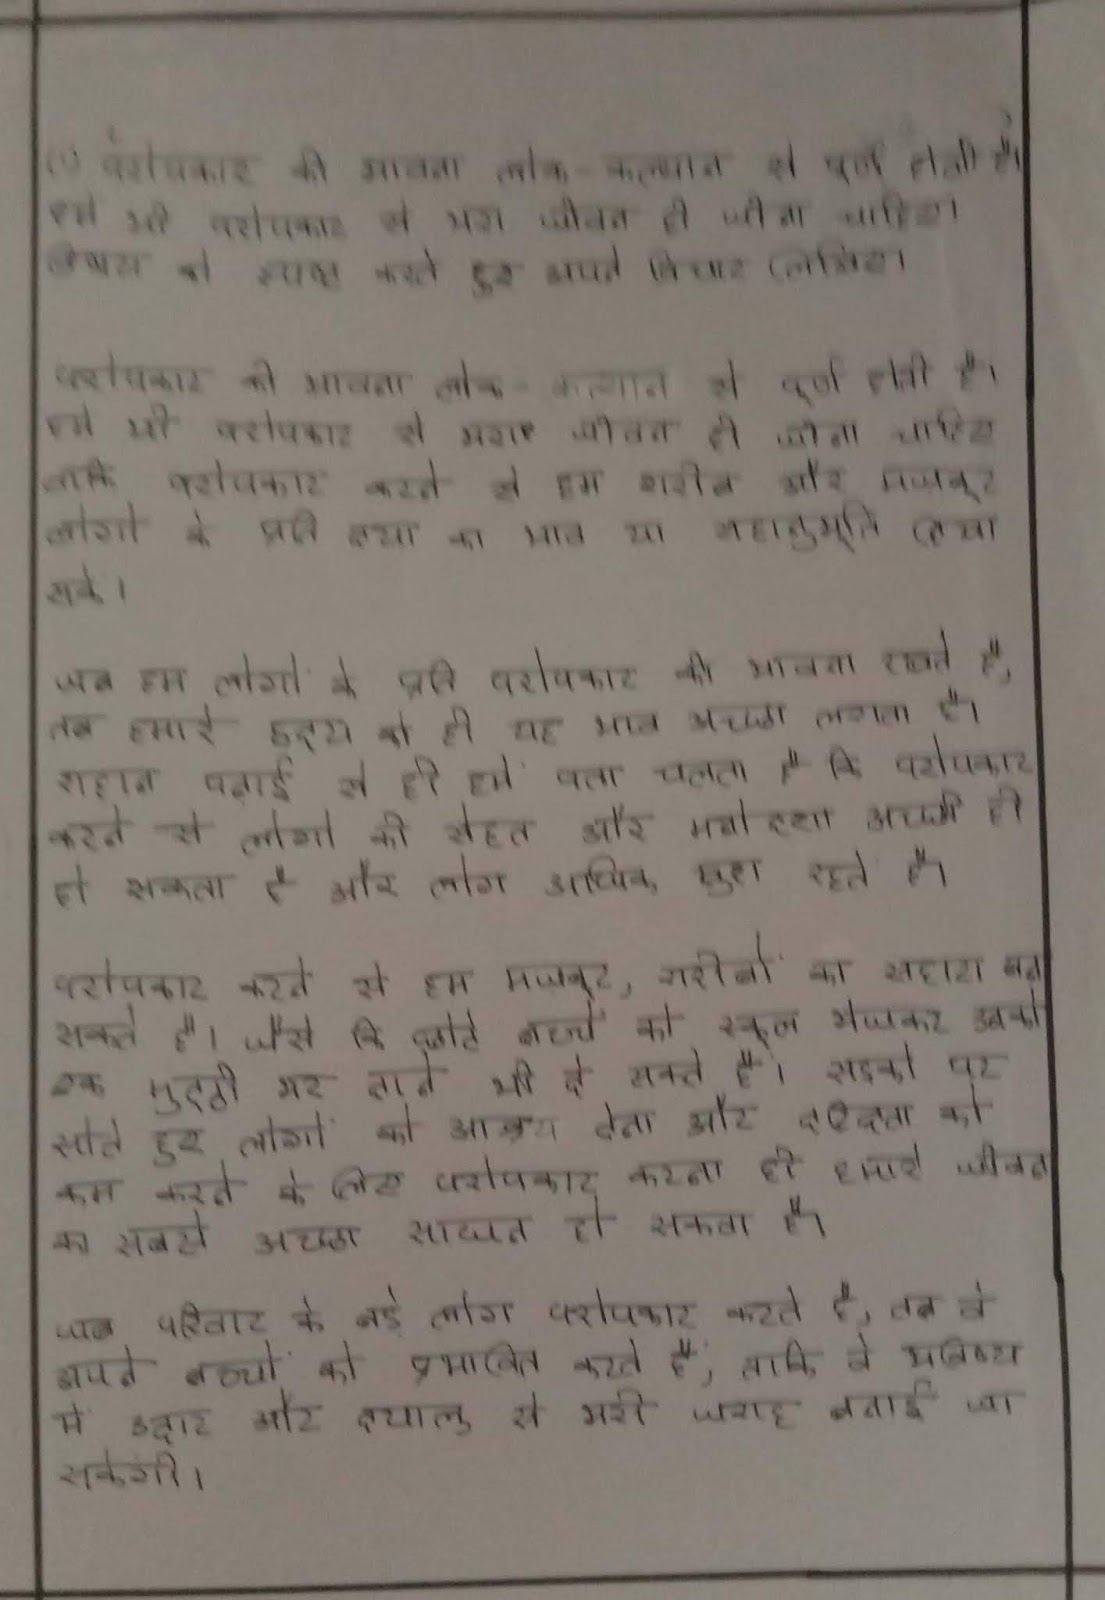 (1) परोपकार की भावना लोक-कल्यान से पूर्ण होती है।
हमे भी परोपकार से भरा जीवन ही जीना चाहिए।
विषय को स्पष्ट करते हुए अपने विचार लिखिए।
परोपकार की भावना लोक-कल्यान से पूर्ण होती है।
हमे भी परोपकार से भरा जीवन ही जीना चाहिए
ताकि परोपकार करने से हम गरीब और मजबूर
लोगो के प्रति दया का भाव या सहानुभूति
सके।
जब हम लोगों के प्रति परोपकार की भावना रखते है,
तब हमारे हृदय को ही यह भाव अच्छा लगता है।
गहान पढ़ाई से ही हमें पता चलता है कि परोपकार
करने से लोगो की सेहत और मनोदशा अच्छी ही
हो सकता है और लोग अधिक खुश रहते है।
परोपकार करने से हम मजबूर, गरीबों का सहारा बन
सकते है। जैसे कि छोटे बच्चे को स्कूल भेजकर उनको
एक मुट्ठी भर दाने भी दे सकते है। सड़को पर
सोते हुए लोगों को आश्रय देना और दरिद्रता को
कम करने के लिए परोपकार करना ही हमारे जीवन
का सबसे अच्छा साधन हो सकता है।
जब परिवार के बड़े लोग परोपकार करते है, तब वे
अपने बच्चों को प्रभावित करते है, ताकि वे भविष्य
मे उदार और दयालु से भरी जगह बनाई जा
सकेगी।